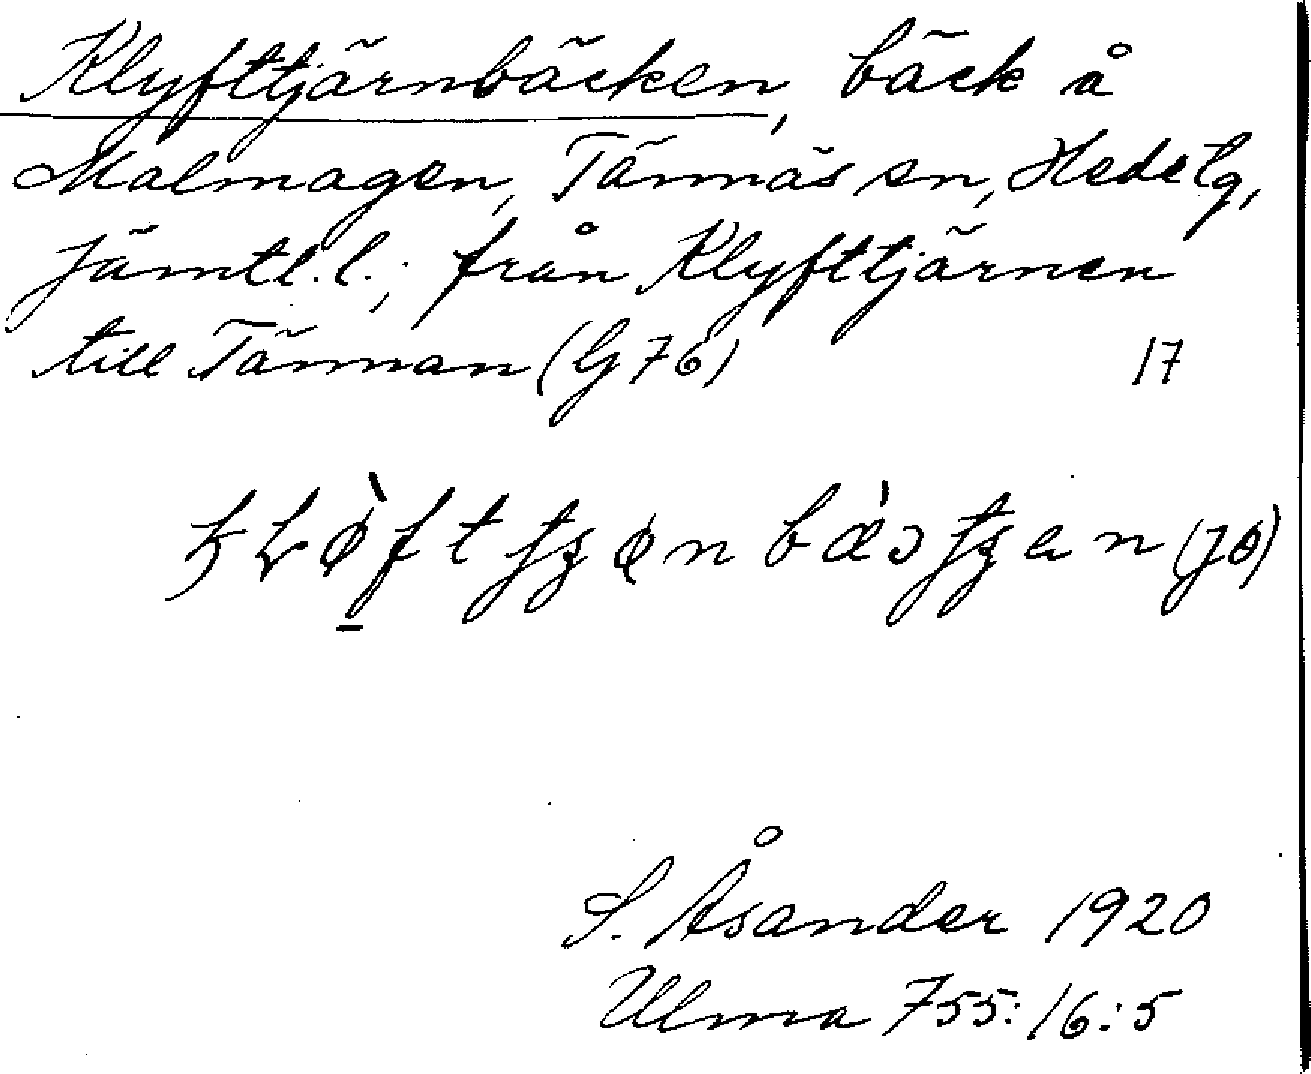 Klyfttjärnbäcken, bäck å
Malmagen, Tännäs sn, Hede tg,
Jämtl. l.; från Klyfttjärnen
till Tännan (G76) 17
(J8)
S. Åsander 1920
Ulma 755:16:5